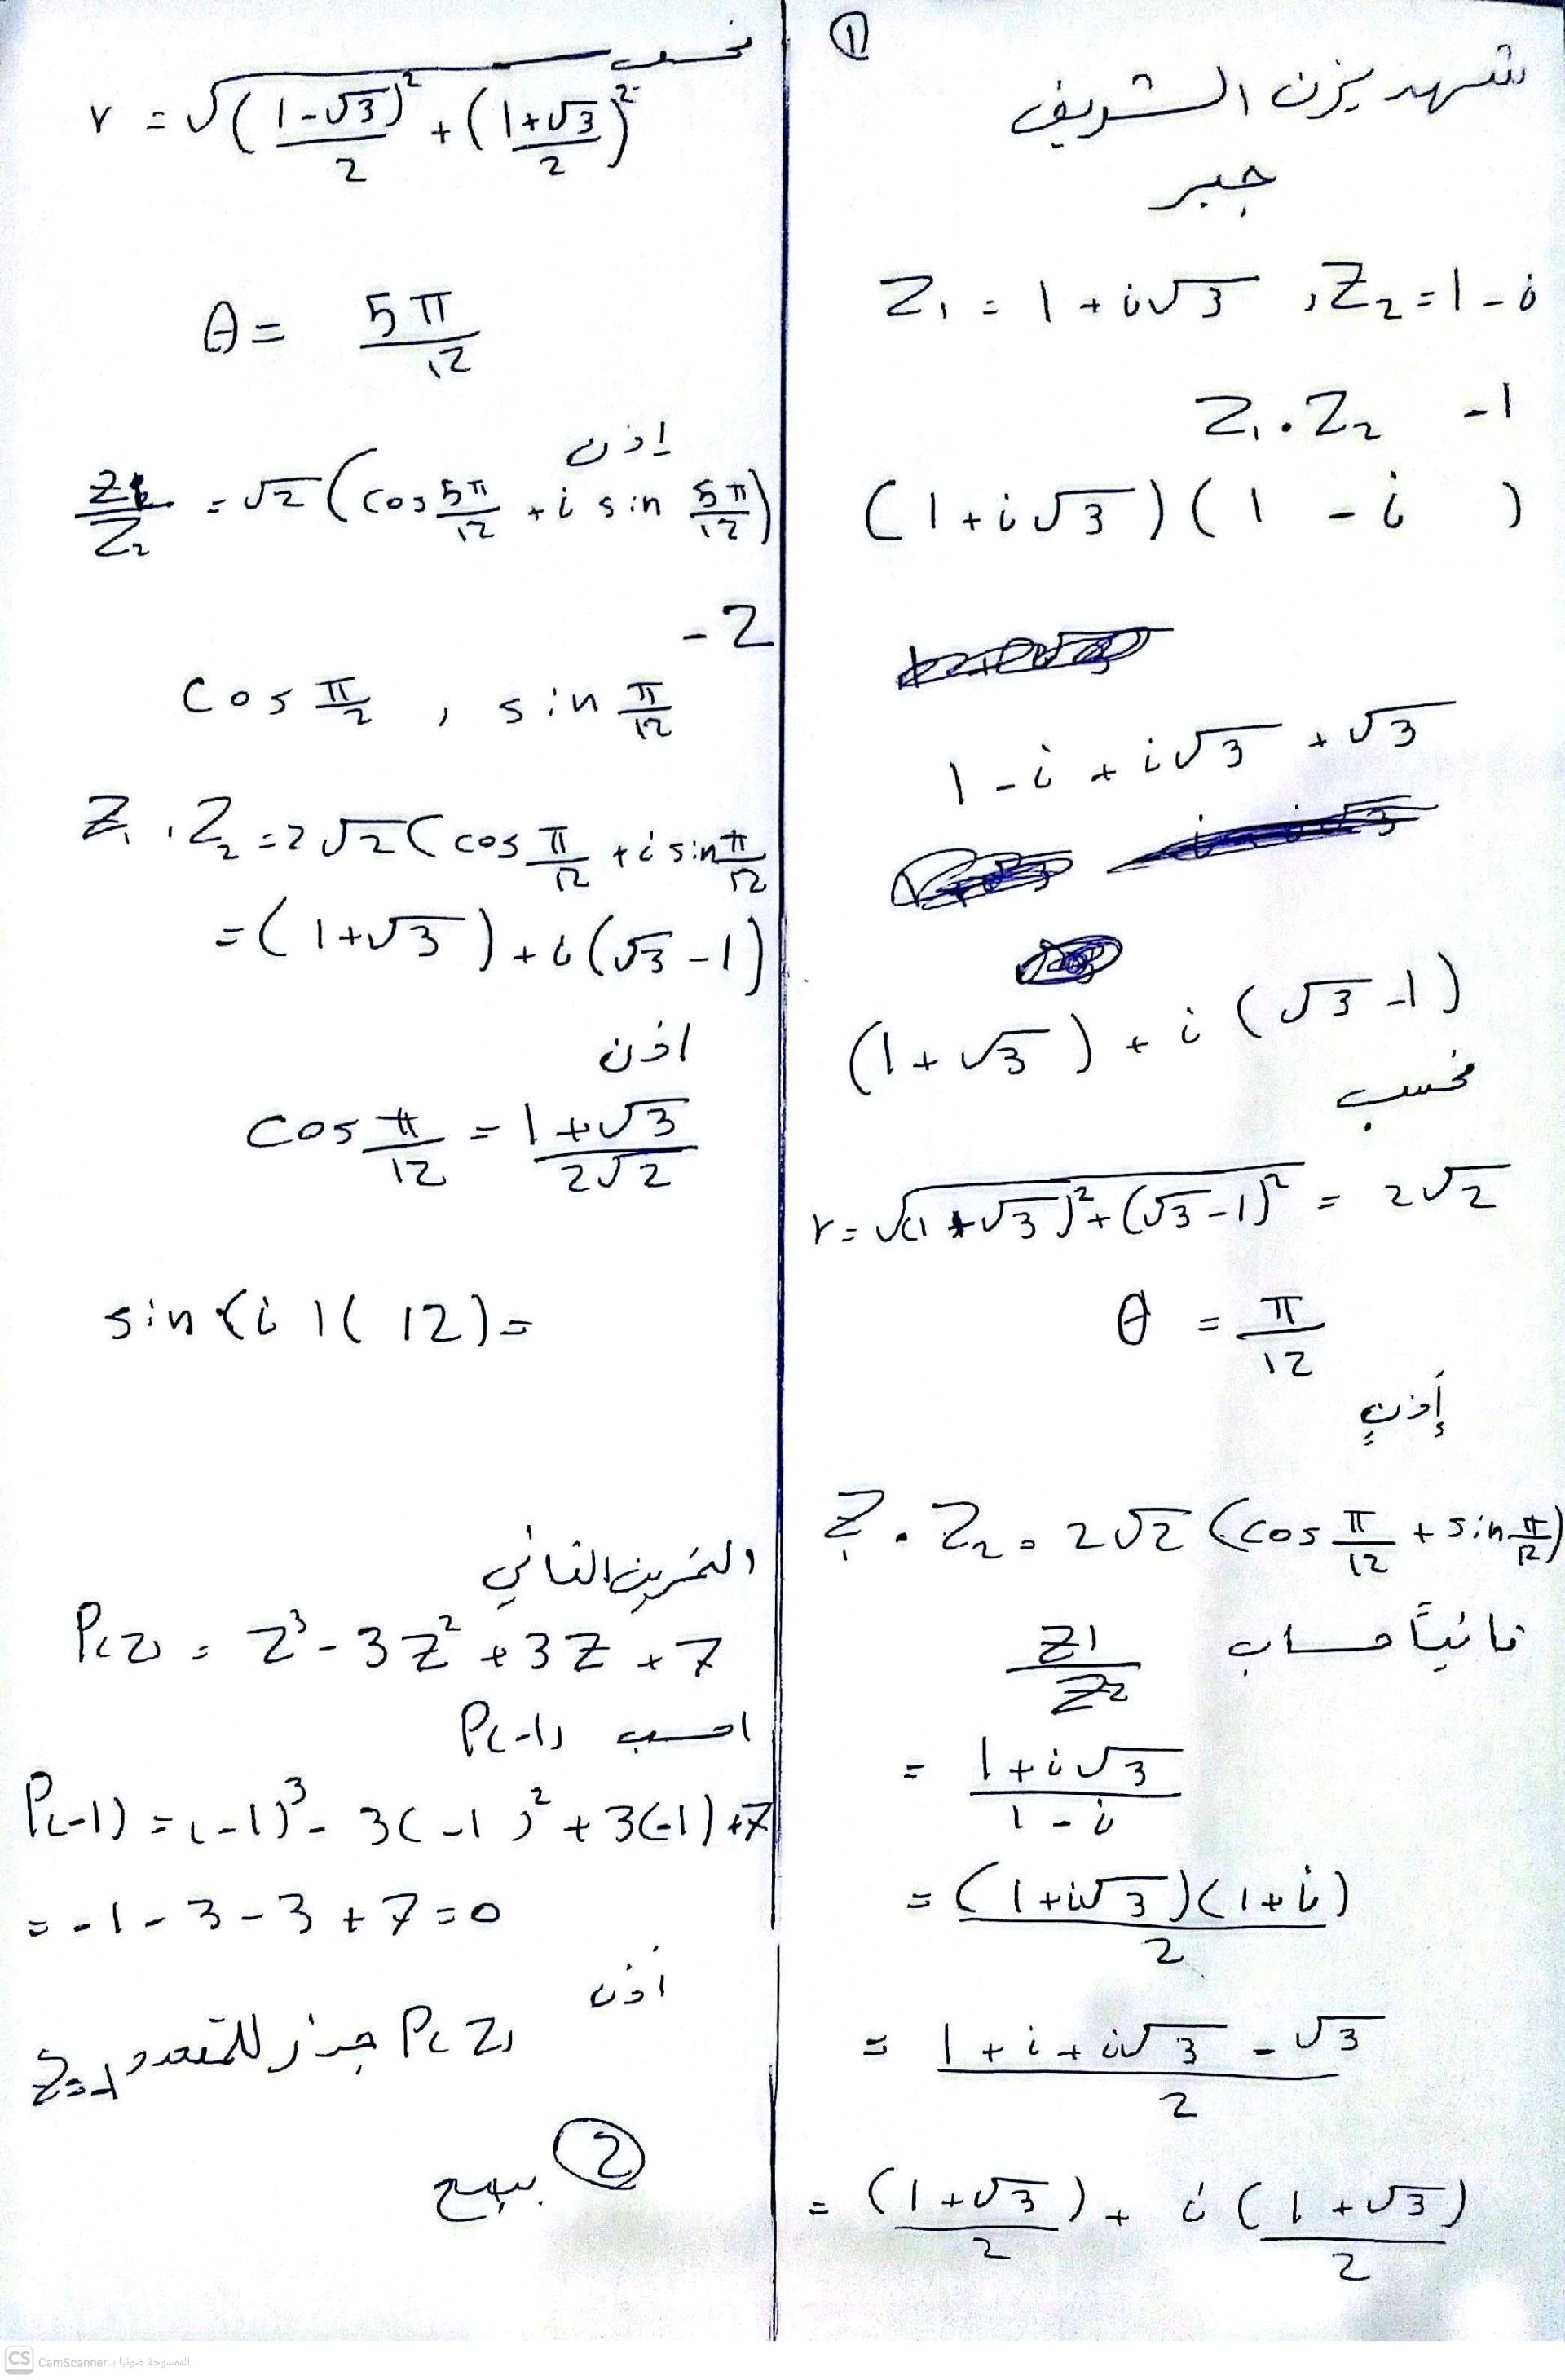 ①
شهد يزن الشريف
جبر
Z₁ = 1 + i√3 , Z₂ = 1 - i
Z₁ . Z₂ -1
(1 + i√3)(1 - i )
1 - i + i√3 + √3
(1 + √3) + i (√3 - 1)
نحسب
r = √((1 + √3)² + (√3 - 1)²) = 2√2
θ = π/12
إذن
Z . Z₂ = 2√2 (cos π/12 + sin π/12)
ثانياً حساب Z1/Z2
= (1 + i√3)/(1 - i)
= (1 + i√3)(1 + i)/2
= (1 + i + i√3 - √3)/2
= (1 + √3)/2 + i (1 + √3)/2
نحسب
r = √(((1 - √3)/2)² + ((1 + √3)/2)²)
θ = 5π/12
إذن
Z₁/Z₂ = √2 (cos 5π/12 + i sin 5π/12)
-2
cos π/2 , sin π/12
Z₁ . Z₂ = 2√2 (cos π/12 + i sin π/12
= (1 + √3) + i (√3 - 1)
اذن
cos π/12 = (1 + √3)/(2√2)
sin (i 1( 12) =
التمرين الثاني
P(z) = Z³ - 3Z² + 3Z + 7
احسب P(-1)
P(-1) = (-1)³ - 3(-1)² + 3(-1) + 7
= -1 - 3 - 3 + 7 = 0
أذن
Z=-1 جذر للمتعدد P(Z)
②
يتبع
CS CamScanner الممسوحة ضوئيا بـ